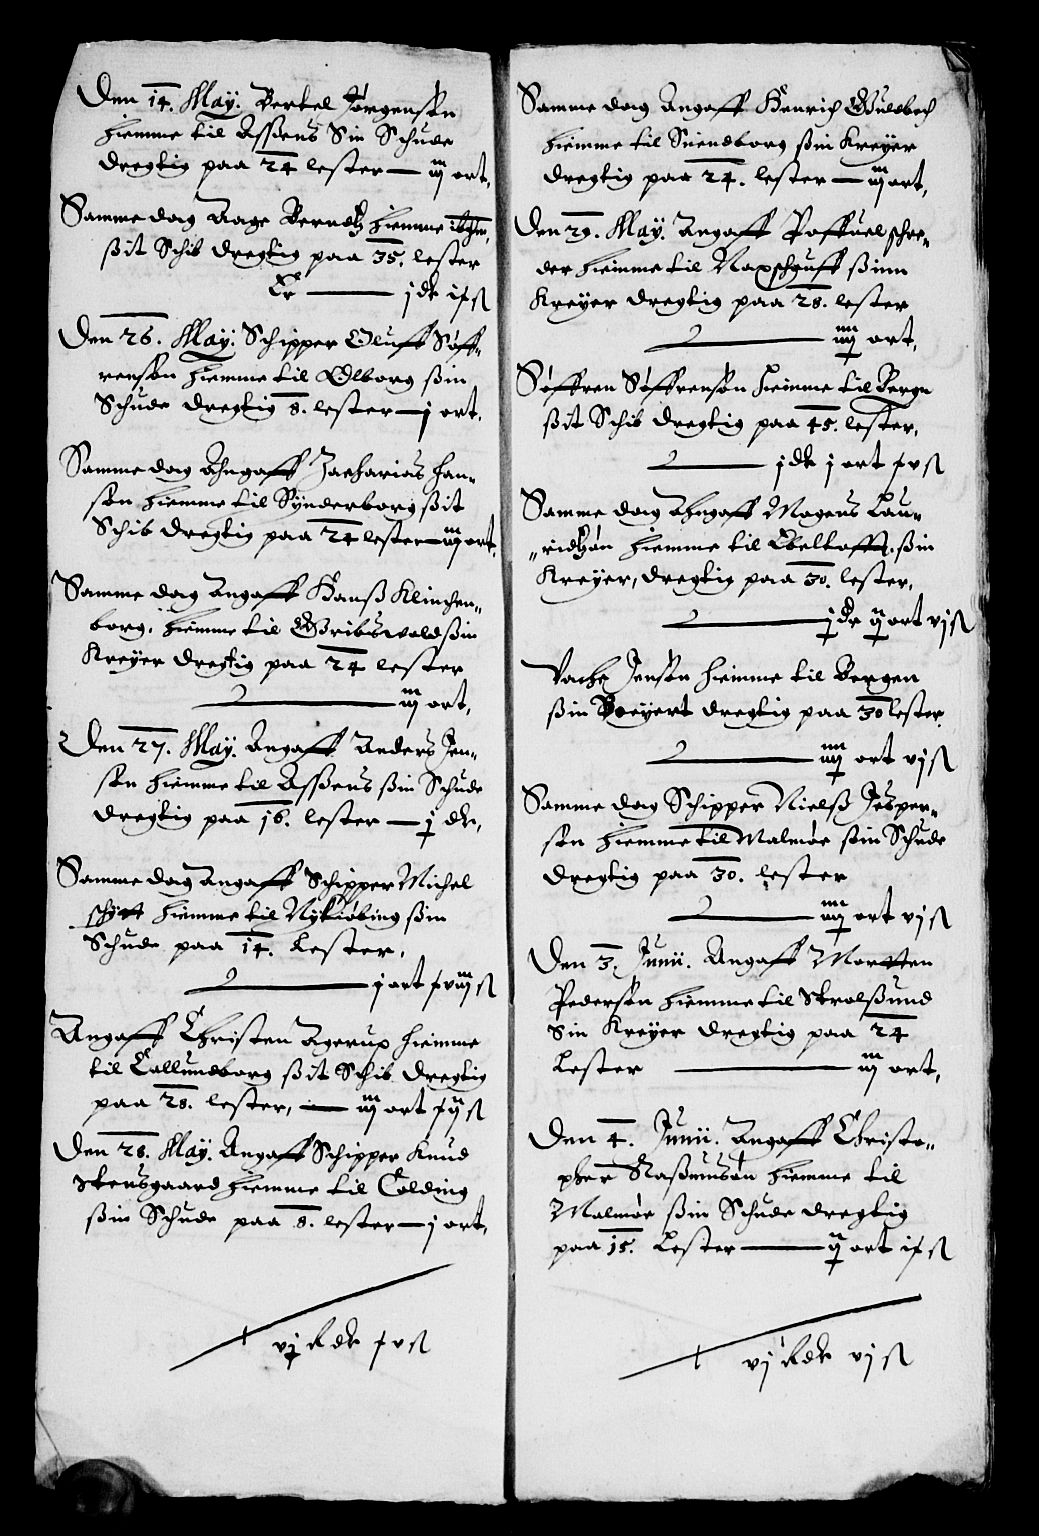 Den 14. May. Bertel Jørgensøn
hiemme til Assens Sin Schude
dregtig paa 24 lester — iij ort.
Samme dag Aage Berendtz hiemme
ßit Schib dregtig paa 35. lester
Er — j dr
Den 26. May. Schipper Oluff Søff-
rensøn hiemme til Olborg ßin
Schude dregtig 8. lester — j ort.
Samme dag Angaff Zacharias Han-
søn hiemme til Synderborg ßit
Schib dregtig paa 24 lester — iij ort.
Samme dag Angaff Hanß Klinchen-
borg. hiemme til Gribswald ßin
Kreyer dregtig paa 24 lester
— iij ort.
Den 27. May. Angaff Anders Jen-
søn hiemme til Assens ßin Schude
dregtig paa 16. lester — j dr.
Samme dag Angaff Schipper Michel
Schøtt hiemme til Nykiøbing ßin
Schude paa 14. Lester.
— j ort xviij ß
Angaff Christen Agerup hiemme
til Callundborg ßit Schib dregtig
paa 28. lester. — iij ort xij ß
Den 28. May. Angaff Schipper Knud
Stensgaard hiemme til Colding
ßin Schude paa 8. lester — j ort.
vj Rdr xv ß
Samme dag Angaff Henrich Guldbech
hiemme til Suendborg ßin Kreyer
dregtig paa 24. lester — iij ort.
Den 29. May. Angaff Paffuel Schre-
der hiemme til Naxschouff ßinn
Kreyer dregtig paa 28. lester
— iiij ort.
Søffren Søffrensøn hiemme til Berge
ßit Schib dregtig paa 45. lester.
— j dr j ort xv ß
Samme dag Angaff Mogens Lau-
"ridtzøn hiemme til Ebeltofft. ßin
Kreyer, dregtig paa 30. lester.
— j dr ij ort vj ß
Jensøn hiemme til Bergen
ßin Boyert dregtig paa 30 lester
— iiij ort vj ß
Samme dag Schipper Nielß Jesper-
søn hiemme til Malmøe ßin Schude
dregtig paa 30. lester
— iiij ort vj ß
Den 3. Junii. Angaff Mortten
Pedersøn hiemme til Stralßund
Sin Kreyer dregtig paa 24
Lester — iij ort.
Den 4. Junii. Angaff Christo-
pher Raßmusøn hiemme til
Malmøe ßin Schude dregtig
paa 15. Lester — ij ort ix ß
vj Rdr vj ß